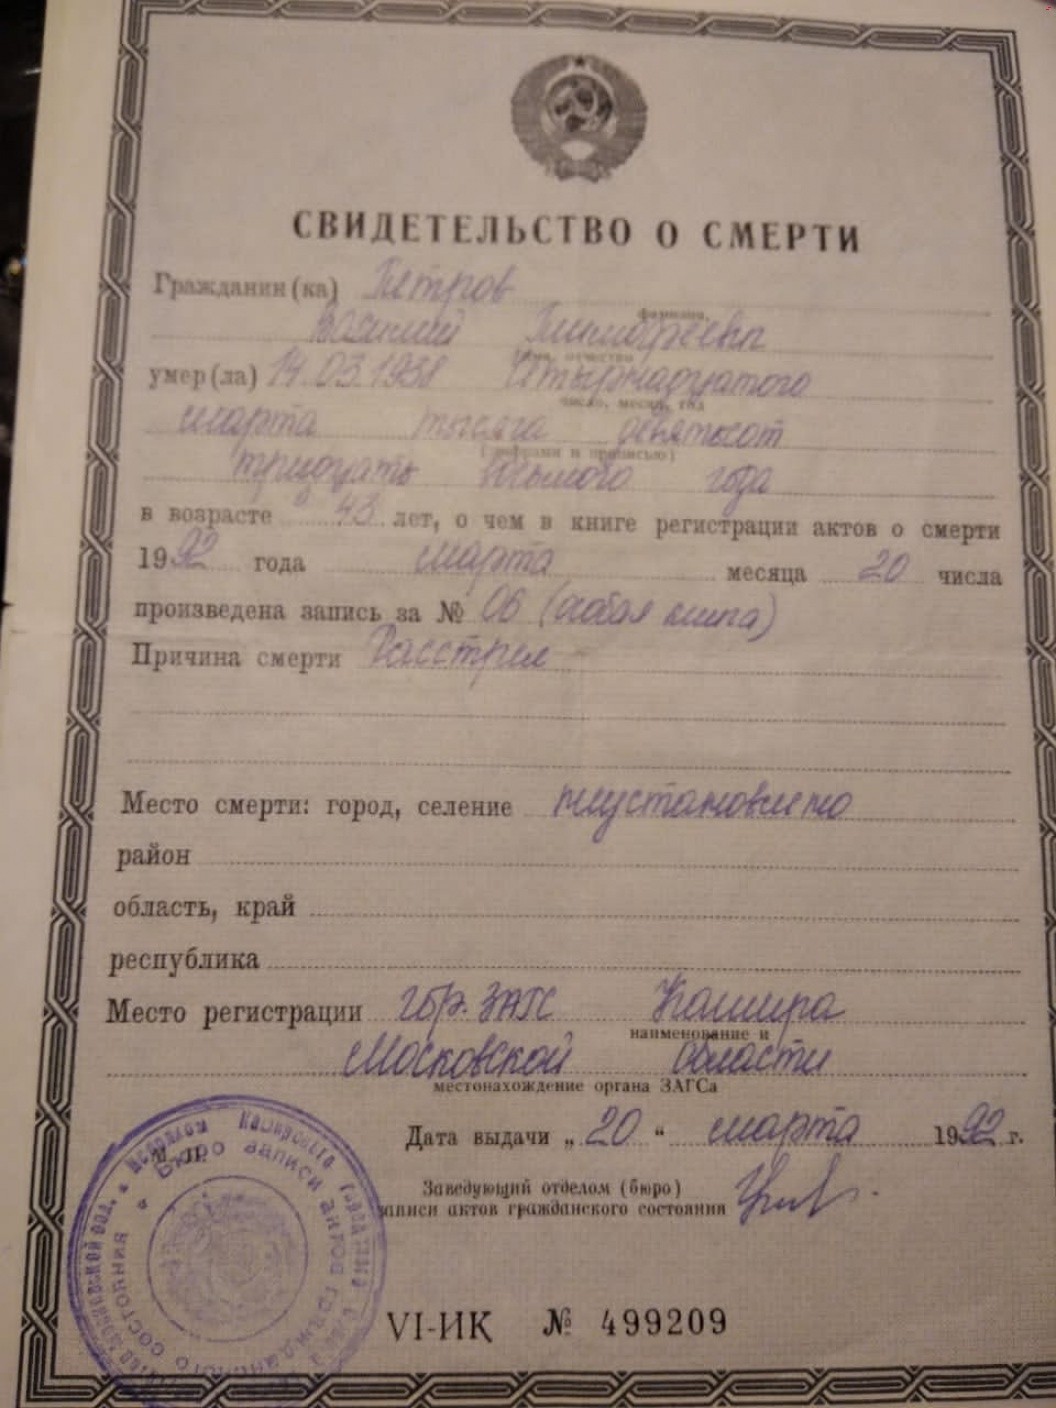 СВИДЕТЕЛЬСТВО О СМЕРТИ
Гражданин(ка) Петров
фамилия,
Василий Тимофеевич
имя, отчество
умер(ла) 14.03.1938 Четырнадцатого
число, месяц, год
марта тысяча девятьсот
(цифрами и прописью)
тридцать восьмого года
в возрасте 43 лет, о чем в книге регистрации актов о смерти
1992 года марта месяца 20 числа
произведена запись за № 06 (особая книга)
Причина смерти Расстрел
Место смерти: город, селение неустановлено
район
область, край
республика
Место регистрации гор. ЗАГС Кашира
наименование и
Московской области
местонахождение органа ЗАГСа
Дата выдачи „ 20 “ марта 1992 г.
М. П.
Заведующий отделом (бюро)
записи актов гражданского состояния
Бюро записи актов гражданского состояния
VI-ИК № 499209